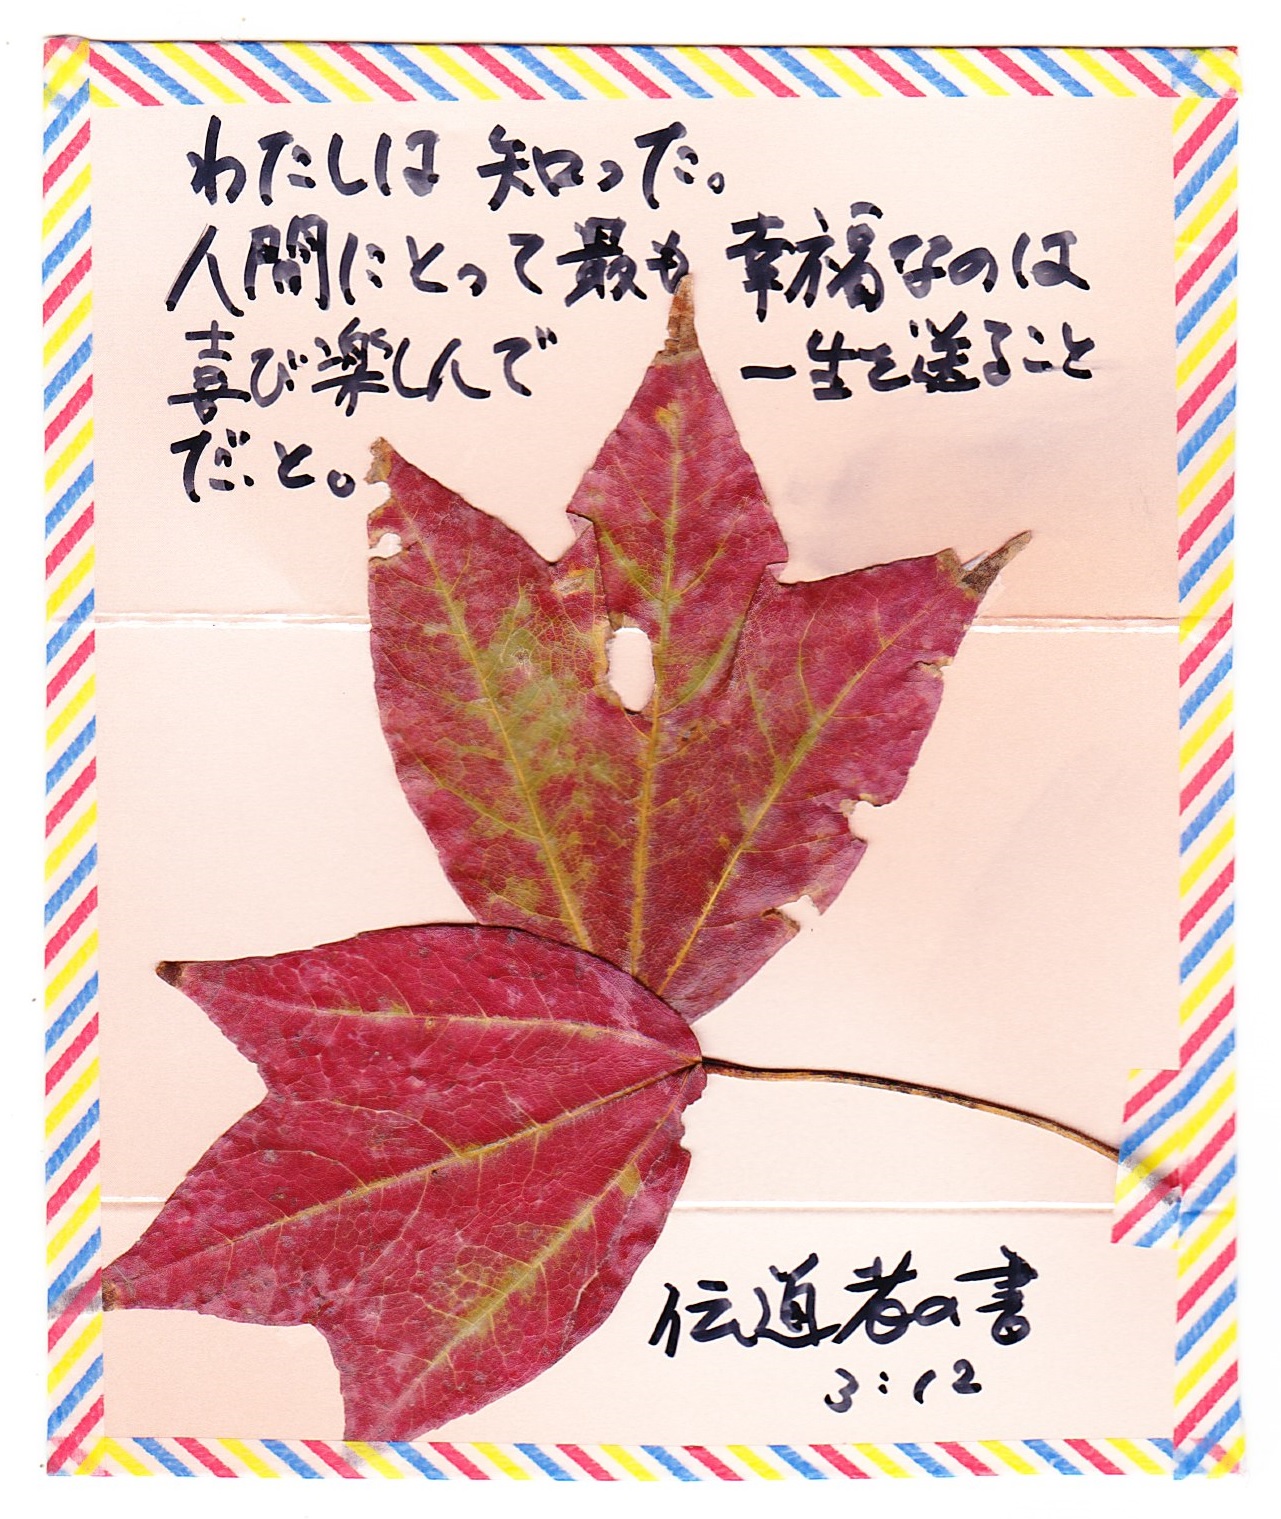 わたしは 知った。
人間にとって最も 幸福なのは
喜び楽しんで 一生を送ること
だと。
伝道者の書
3:12